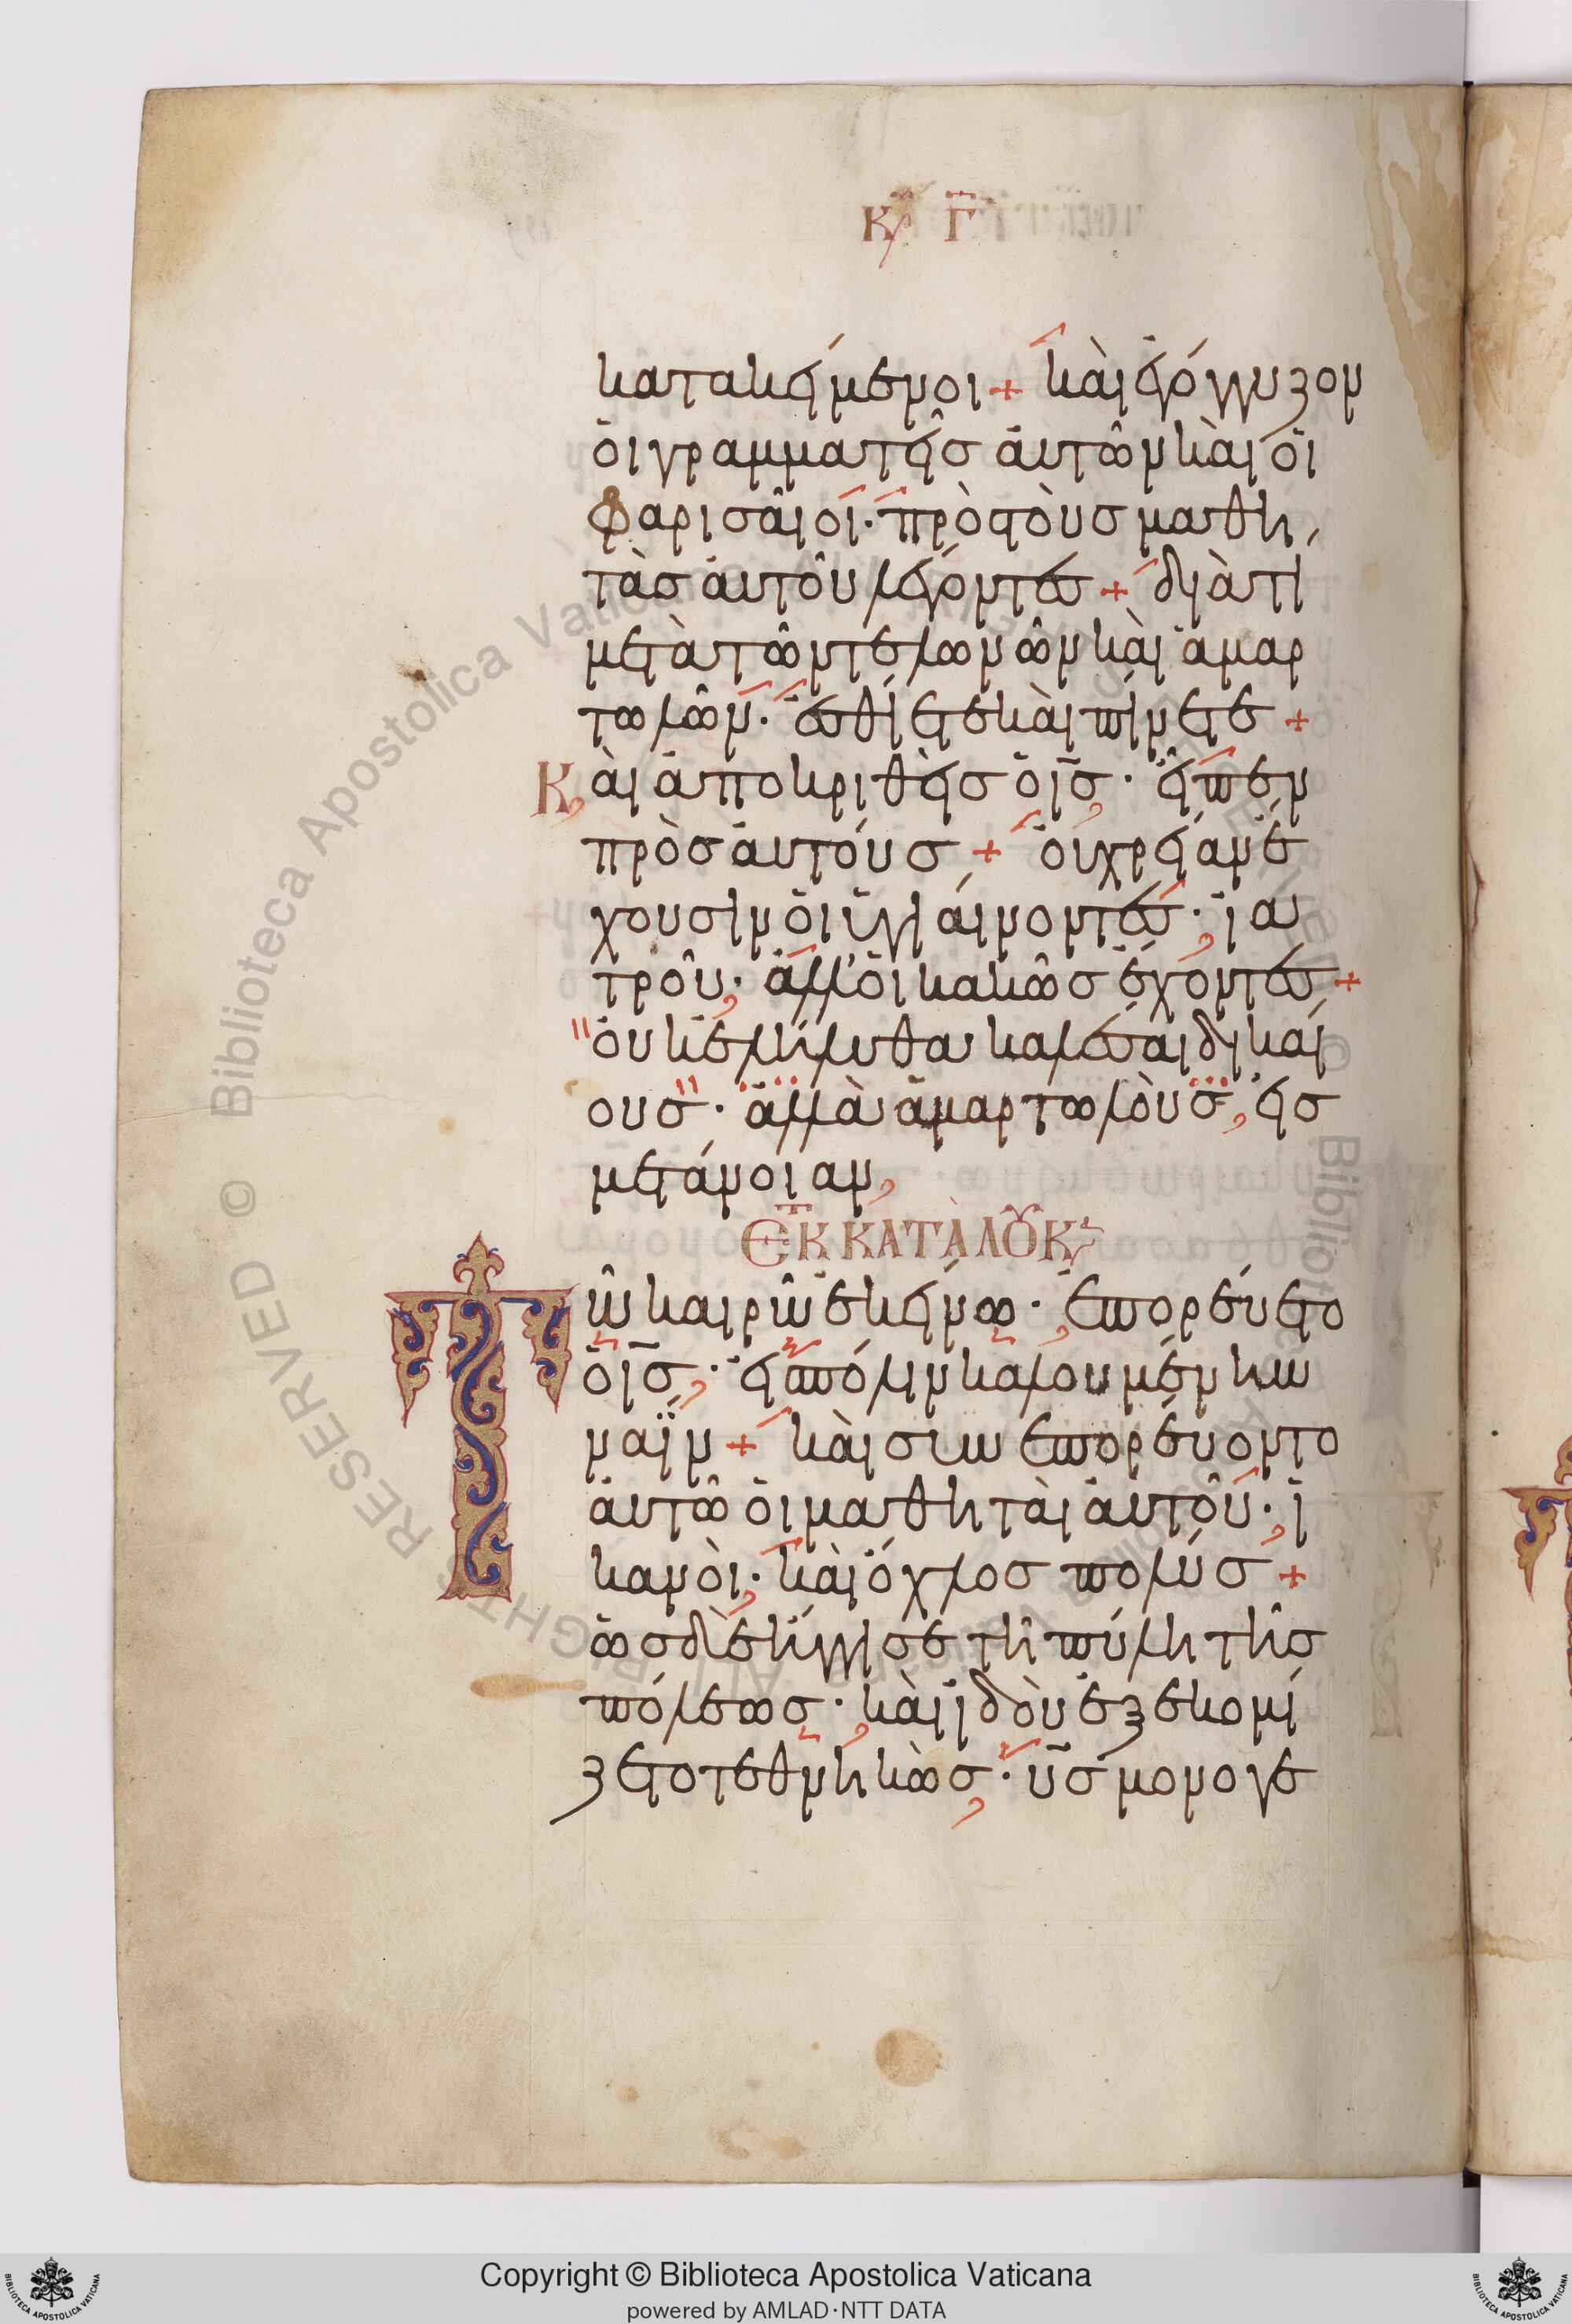 Κυρ Γ
κατακείμενοι + καὶ ἐγόγγυζον
ὁι γραμματεῖς ἀυτῶν καὶ ὁι
φαρισαῖοι · πρὸς τοὺς μαθη
τὰς ἀυτοῦ λέγοντες + διὰ τί
μετὰ τῶν τελωνῶν καὶ ἁμαρ
τωλῶν · ἐσθίετε καὶ πίνετε +
Καὶ ἀποκριθεὶς ὁ ις · εἶπεν
πρὸς ἀυτούς + ὀυ χρείαν ἔ
χουσιν ὁι ὑγιάινοντες · ἰα
τροῦ · ἀλλ' ὁι κακῶς ἔχοντες +
ὀυκ ἐλήλυθα καλέσαι δικαί
ους · ἀλλὰ ἁμαρτωλοὺς, εἰς
μετάνοιαν,
ΕΚ ΚΑΤΑ ΛΟΥΚ
Τῶ καιρῶ ἐκείνω · ἐπορέυετο
ὁ ις · εἰς πόλιν καλουμένην
ναΐν + καὶ συνεπορέυοντο
ἀυτῶ ὁι μαθηταὶ ἀυτοῦ · ἱ
κανοὶ · καὶ ὄχλος πολύς +
ὡς δὲ ἤγγισε τῆ πύλη τῆς
πόλεως · καὶ ἰδοὺ ἐξεκομί
ζετο τεθνηκὼς · υς μονογε
Copyright © Biblioteca Apostolica Vaticana
powered by AMLAD·NTT DATA